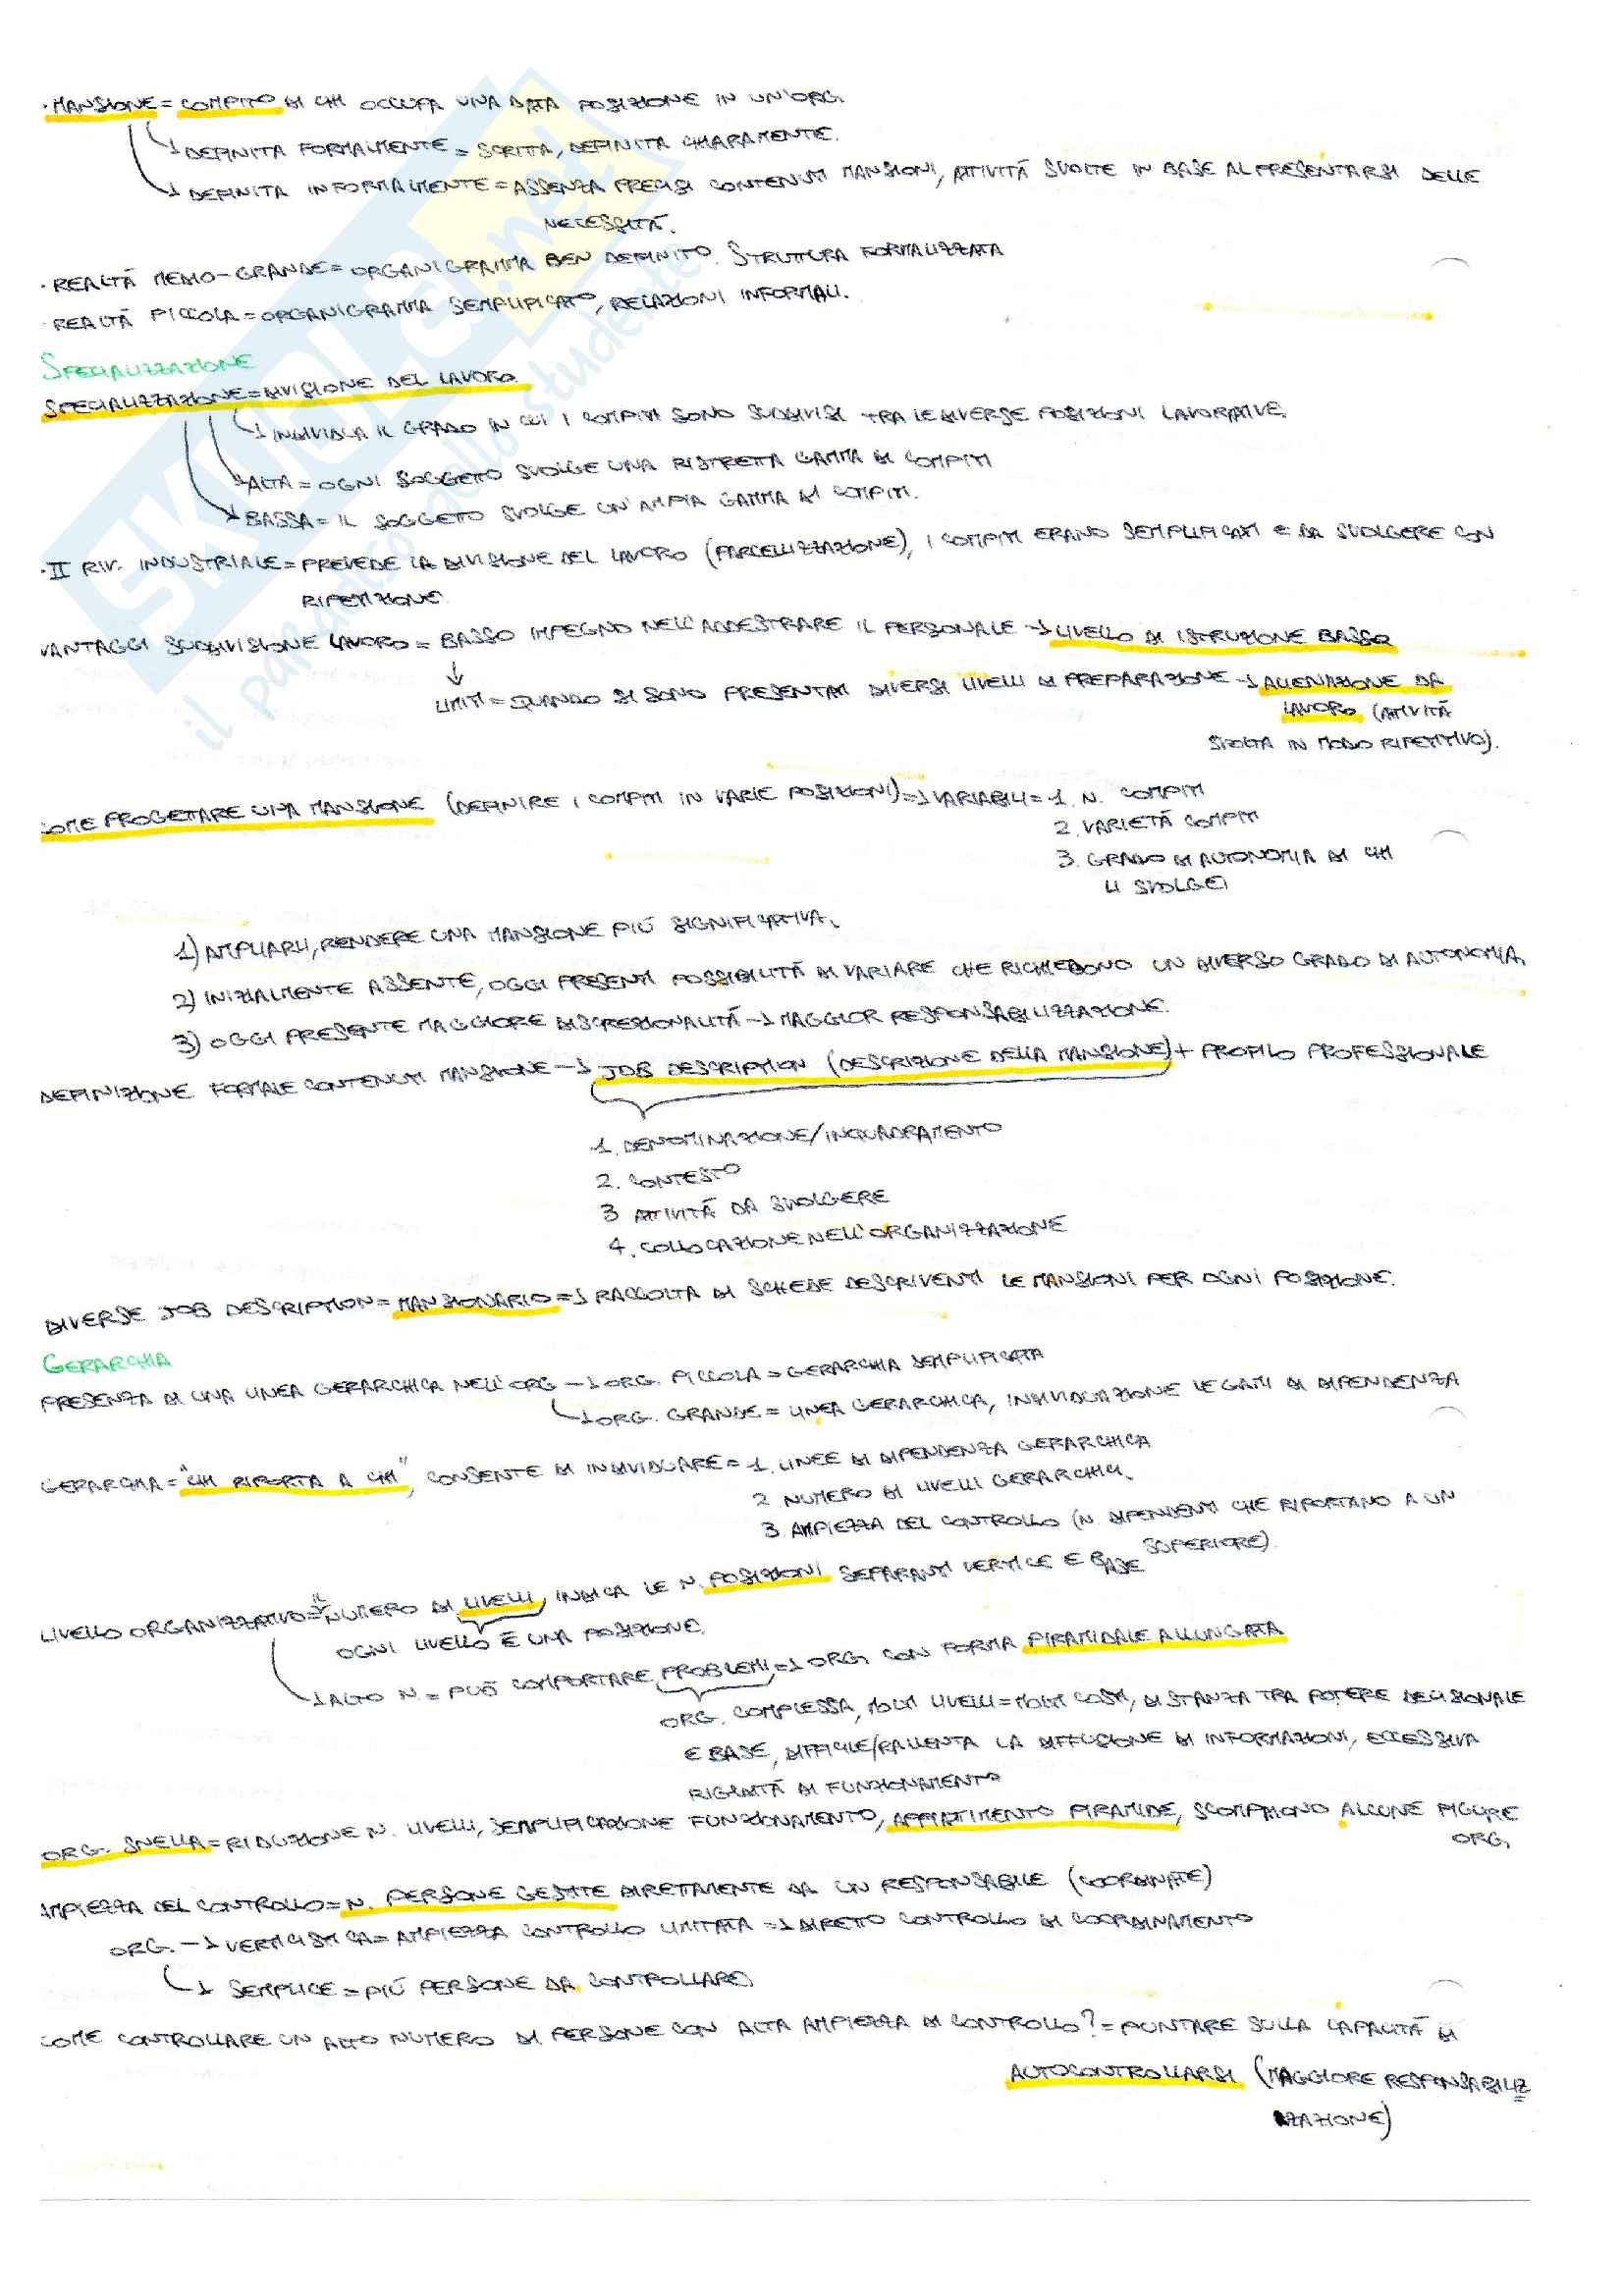 · MANSIONE = COMPITO DI CHI OCCUPA UNA DATA POSIZIONE IN UN'ORG.
→ DEFINITA FORMALMENTE = SCRITTA, DEFINITA CHIARAMENTE.
→ DEFINITA INFORMALMENTE = ASSENZA PRECISI CONTENUTI MANSIONI, ATTIVITÀ SVOLTE IN BASE AL PRESENTARSI DELLE
NECESSITÀ.
· REALTÀ MEDIO-GRANDE = ORGANIGRAMMA BEN DEFINITO. STRUTTURA FORMALIZZATA
· REALTÀ PICCOLA = ORGANIGRAMMA SEMPLIFICATO, RELAZIONI INFORMALI.
SPECIALIZZAZIONE
SPECIALIZZAZIONE = DIVISIONE DEL LAVORO.
→ INDIVIDUA IL GRADO IN CUI I COMPITI SONO SUDDIVISI TRA LE DIVERSE POSIZIONI LAVORATIVE.
→ ALTA = OGNI SOGGETTO SVOLGE UNA RISTRETTA GAMMA DI COMPITI
→ BASSA = IL SOGGETTO SVOLGE UN'AMPIA GAMMA DI COMPITI.
· II RIV. INDUSTRIALE = PREVEDE LA DIVISIONE DEL LAVORO (PARCELLIZZAZIONE), I COMPITI ERANO SEMPLIFICATI E DA SVOLGERE CON
RIPETIZIONE.
VANTAGGI SUDDIVISIONE LAVORO = BASSO IMPEGNO NELL'ADDESTRARE IL PERSONALE → LIVELLO DI ISTRUZIONE BASSO
↓
LIMITI = QUANDO SI SONO PRESENTATI DIVERSI LIVELLI DI PREPARAZIONE → ALIENAZIONE DA
LAVORO (ATTIVITÀ
SVOLTA IN MODO RIPETITIVO).
COME PROGETTARE UNA MANSIONE (DEFINIRE I COMPITI IN VARIE POSIZIONI) ⇒ VARIABILI = 1. N. COMPITI
2. VARIETÀ COMPITI
3. GRADO DI AUTONOMIA DI CHI
LI SVOLGE
1) AMPLIARLI, RENDERE UNA MANSIONE PIÙ SIGNIFICATIVA.
2) INIZIALMENTE ASSENTE, OGGI PRESENTI POSSIBILITÀ DI VARIARE CHE RICHIEDONO UN DIVERSO GRADO DI AUTONOMIA.
3) OGGI PRESENTE MAGGIORE DISCREZIONALITÀ → MAGGIOR RESPONSABILIZZAZIONE.
DEFINIZIONE FORMALE CONTENUTI MANSIONE → JOB DESCRIPTION (DESCRIZIONE DELLA MANSIONE) + PROFILO PROFESSIONALE
1. DENOMINAZIONE/INQUADRAMENTO
2. CONTESTO
3 ATTIVITÀ DA SVOLGERE
4. COLLOCAZIONE NELL'ORGANIZZAZIONE
DIVERSE JOB DESCRIPTION = MANSIONARIO ⇒ RACCOLTA DI SCHEDE DESCRIVENTI LE MANSIONI PER OGNI POSIZIONE.
GERARCHIA
PRESENZA DI UNA LINEA GERARCHICA NELL'ORG → ORG. PICCOLA = GERARCHIA SEMPLIFICATA
→ ORG. GRANDE = LINEA GERARCHICA, INDIVIDUAZIONE LEGAMI DI DIPENDENZA
GERARCHIA = "CHI RIPORTA A CHI", CONSENTE DI INDIVIDUARE = 1. LINEE DI DIPENDENZA GERARCHICA
2 NUMERO DI LIVELLI GERARCHICI.
3 AMPIEZZA DEL CONTROLLO (N. DIPENDENTI CHE RIPORTANO A UN
SUPERIORE).
LIVELLO ORGANIZZATIVO = IL NUMERO DI LIVELLI, INDICA LE N. POSIZIONI SEPARANTI VERTICE E BASE
OGNI LIVELLO È UNA POSIZIONE.
→ ALTO N. = PUÒ COMPORTARE PROBLEMI ⇒ ORG. CON FORMA PIRAMIDALE ALLUNGATA
ORG. COMPLESSA, MOLTI LIVELLI = MOLTI COSTI, DISTANZA TRA POTERE DECISIONALE
E BASE, DIFFICILE/RALLENTA LA DIFFUSIONE DI INFORMAZIONI, ECCESSIVA
RIGIDITÀ DI FUNZIONAMENTO
ORG. SNELLA = RIDUZIONE N. LIVELLI, SEMPLIFICAZIONE FUNZIONAMENTO, APPIATTIMENTO PIRAMIDE, SCOMPAIONO ALCUNE FIGURE
ORG.
AMPIEZZA DEL CONTROLLO = N. PERSONE GESTITE DIRETTAMENTE DA UN RESPONSABILE (COORDINATE)
ORG. → VERTICISTICA = AMPIEZZA CONTROLLO LIMITATA ⇒ DIRETTO CONTROLLO DI COORDINAMENTO
→ SEMPLICE = PIÙ PERSONE DA CONTROLLARE.
COME CONTROLLARE UN ALTO NUMERO DI PERSONE CON ALTA AMPIEZZA DI CONTROLLO? = PUNTARE SULLA CAPACITÀ DI
AUTOCONTROLLARSI (MAGGIORE RESPONSABILIZ
ZAZIONE)
SKUOLA.net
il paradiso dello studente